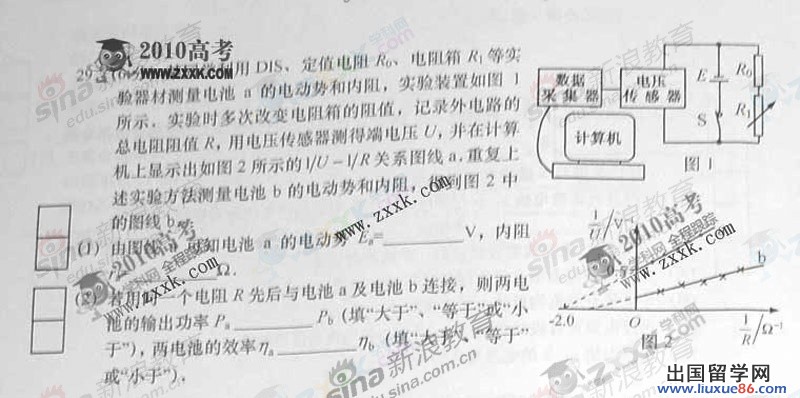 2010高考
WWW.ZXXK.COM
29
用 DIS、定值电阻 R₀、电阻箱 R₁ 等实
验器材测量电池 a 的电动势和内阻，实验装置如图 1
所示．实验时多次改变电阻箱的阻值，记录外电路的
总电阻阻值 R，用电压传感器测得端电压 U，并在计算
机上显示出如图 2 所示的 1/U－1/R 关系图线 a．重复上
述实验方法测量电池 b 的电动势和内阻，得到图 2 中
的图线 b．
(1) 由图线 a 可知电池 a 的电动势 Eₐ=________V，内阻
Ω．
(2) 若用同一个电阻 R 先后与电池 a 及电池 b 连接，则两电
池的输出功率 Pₐ________P_b (填“大于”、“等于”或“小
于”)，两电池的效率 ηₐ________η_b (填“大于”、“等于”
或“小于”)．
数据
采集器
电压
传感器
计算机
E
R₀
R₁
S
图 1
1/U /V⁻¹
b
-2.0
O
1/R /Ω⁻¹
图 2
新浪教育
sina
edu.sina.com.cn
www.zxxk.com
2010高考
学科网 全程跟踪
出国留学网
www.liuxue86.com